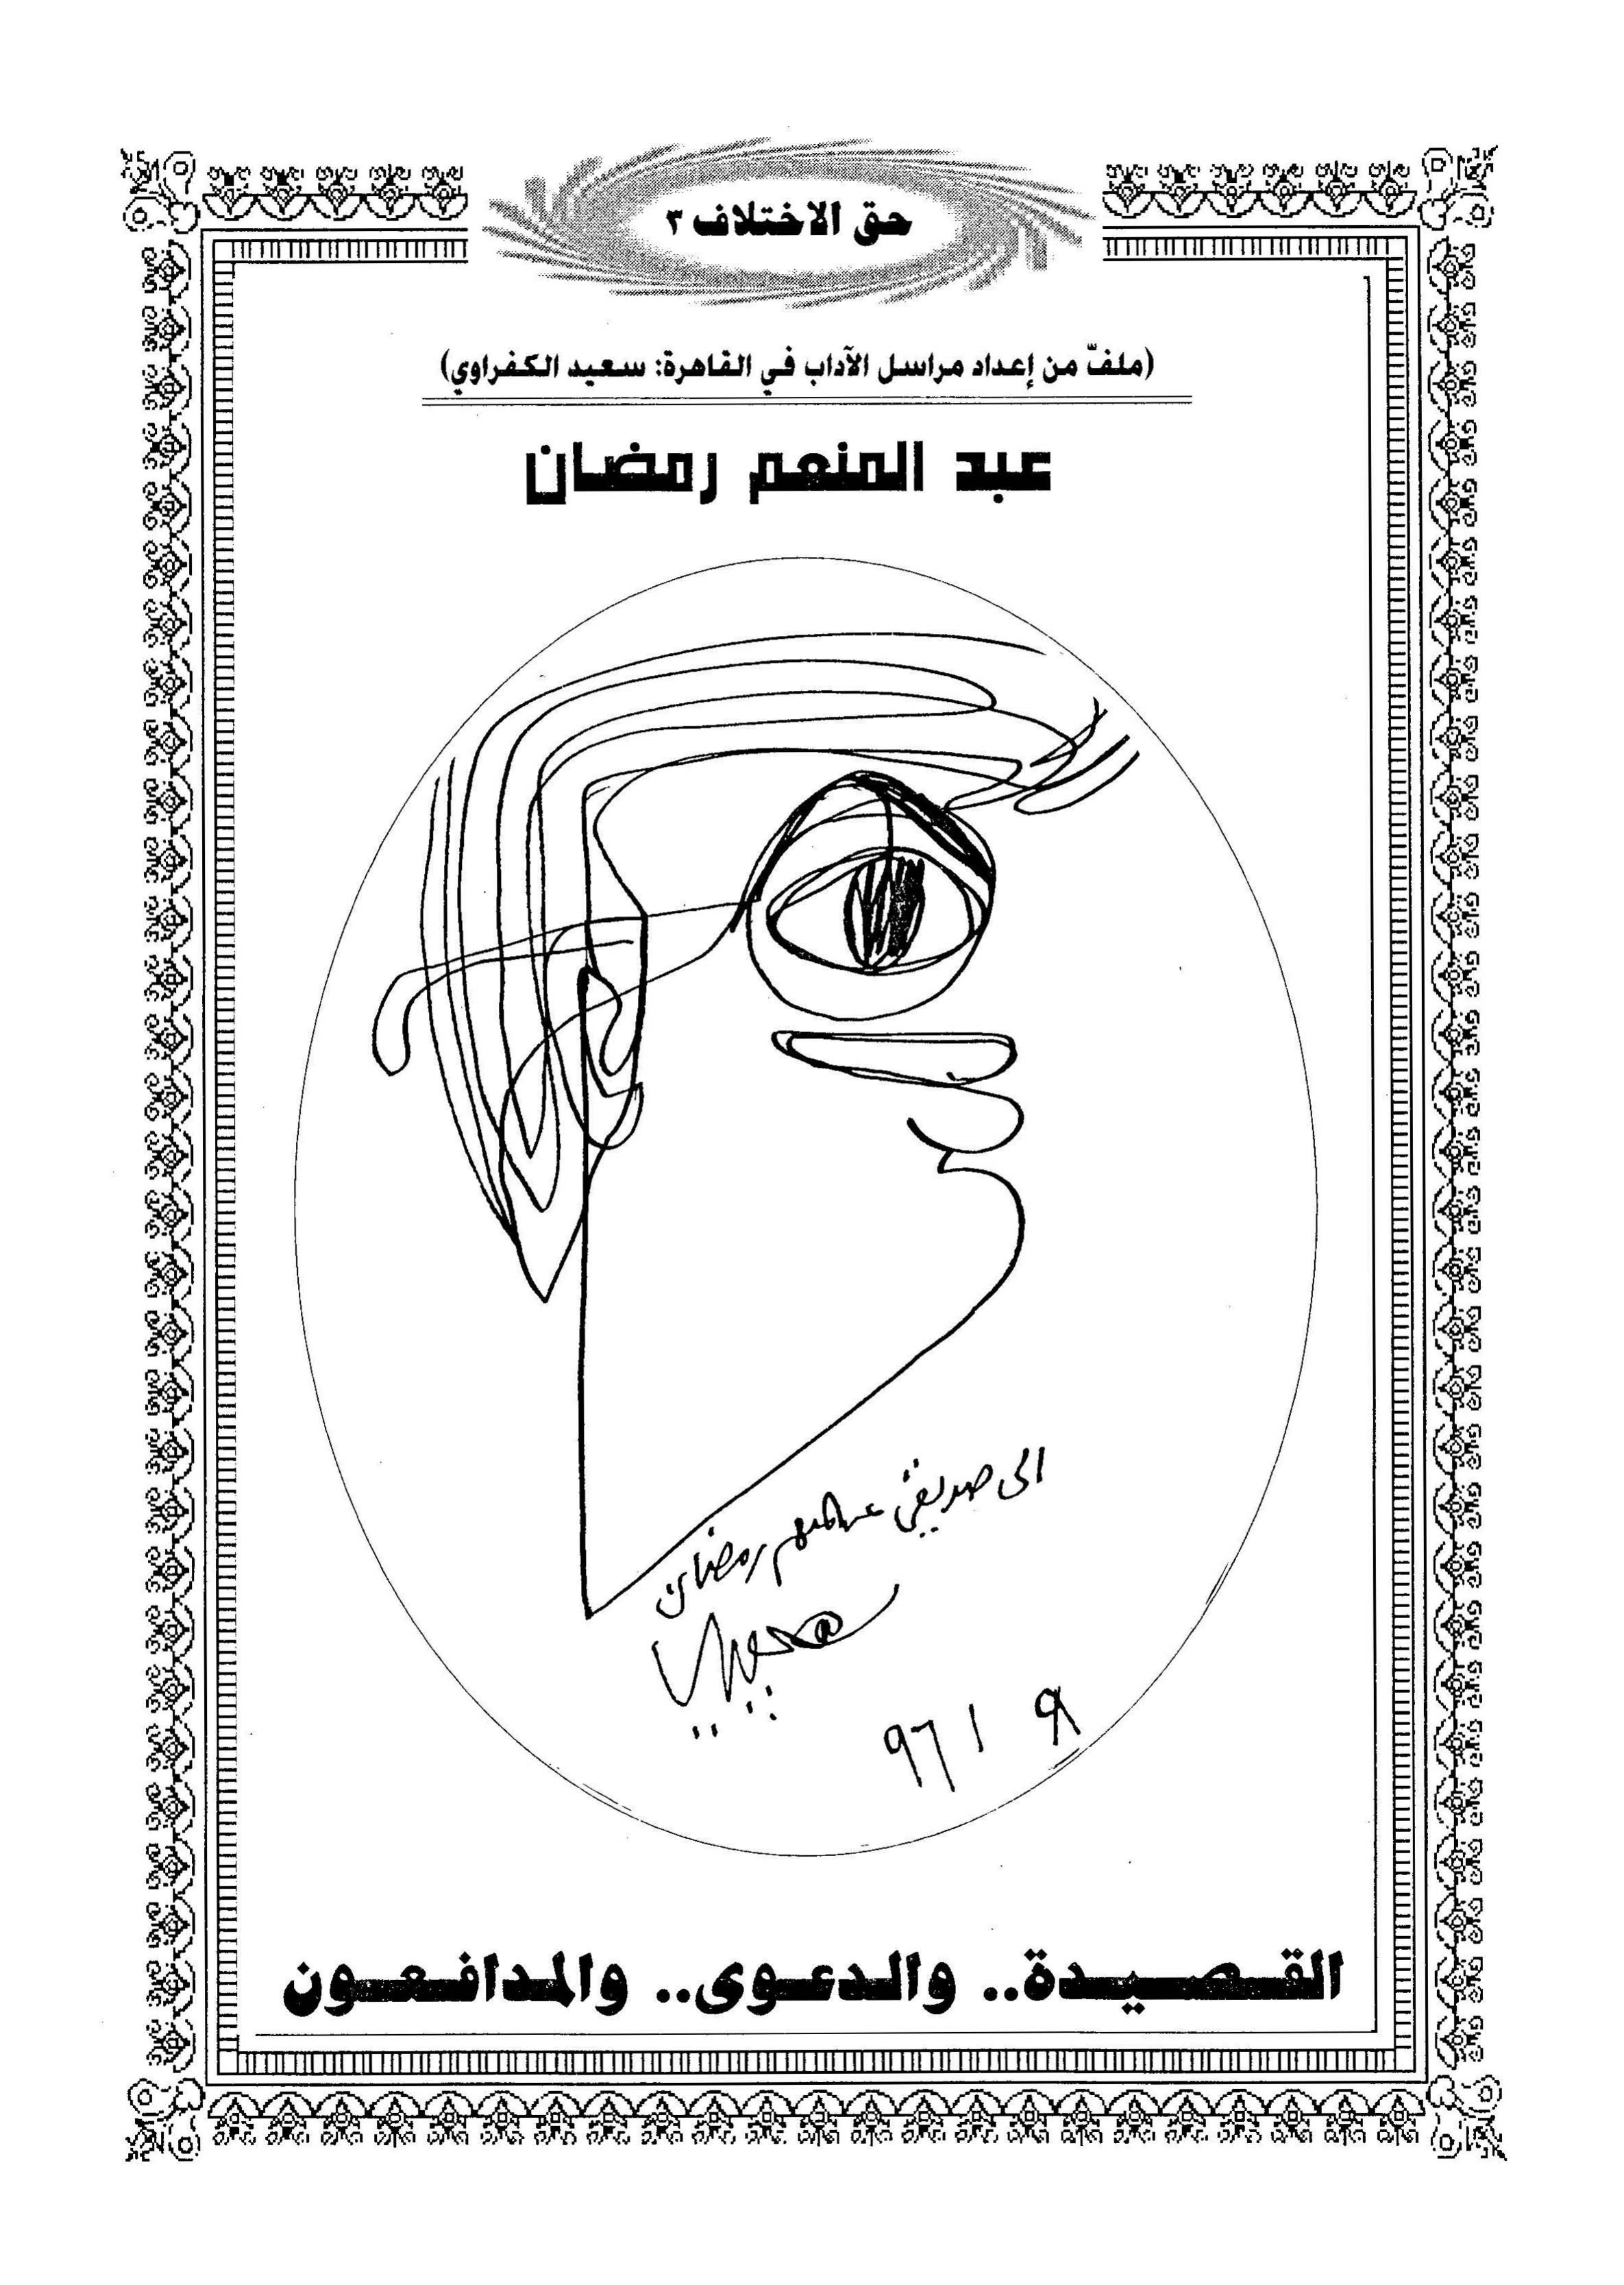 حق الاختلاف ٣
(ملفّ من إعداد مراسل الآداب في القاهرة: سعيد الكفراوي)
عبد المنعم رمضان
الى صديقي عبد المنعم رمضان
القصيدة.. والدعوى.. والمدافعون